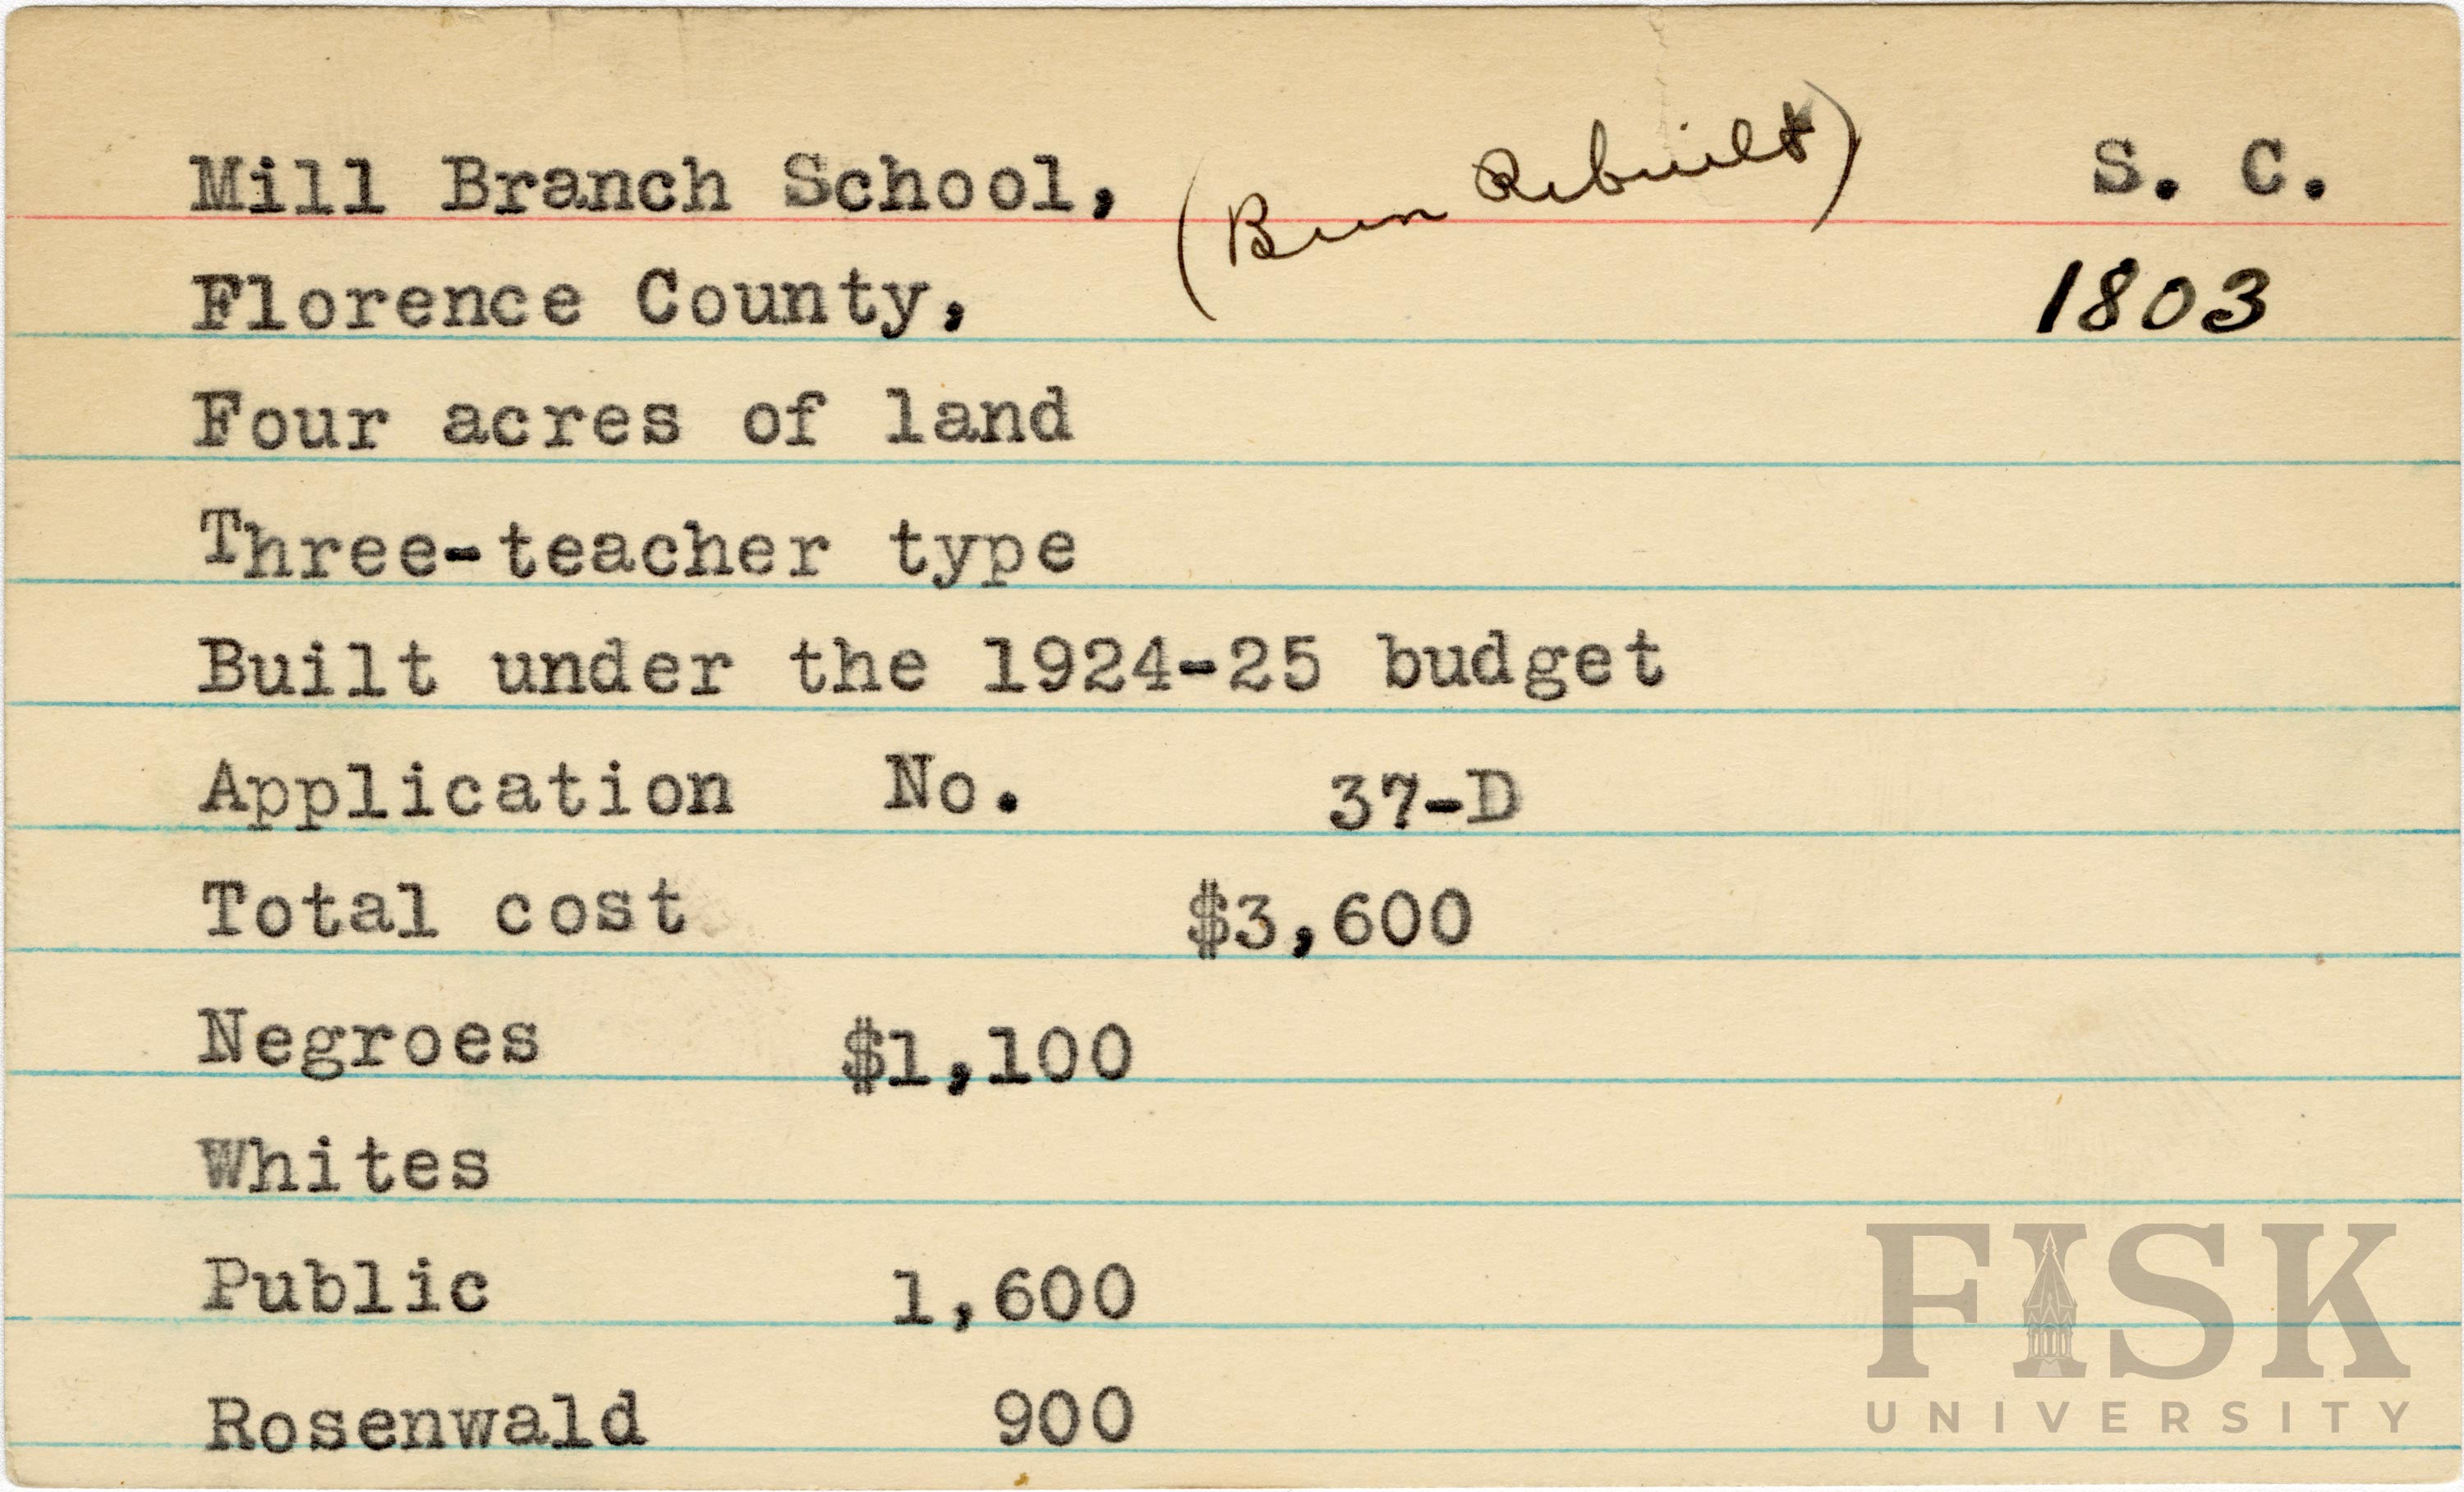 Mill Branch School, (Been Rebuilt) S. C.
Florence County, 1803
Four acres of land
Three-teacher type
Built under the 1924-25 budget
Application No. 37-D
Total cost $3,600
Negroes $1,100
Whites
Public 1,600
Rosenwald 900
FISK
UNIVERSITY